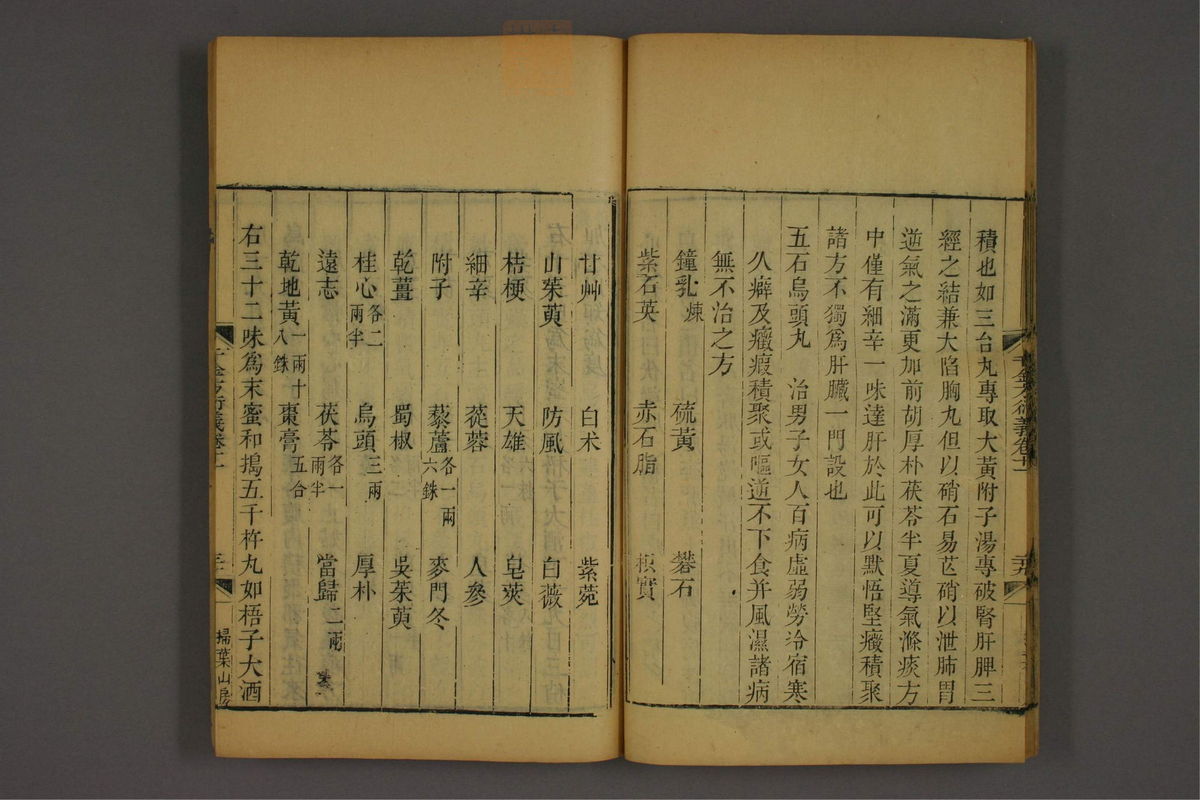 積也如三台丸專取大黃附子湯專破腎肝脾三
經之結兼大陷胸丸但以硝石易芒硝以泄肺胃
逆氣之滿更加前胡厚朴茯苓半夏導氣滌痰方
中僅有細辛一味達肝於此可以默悟堅癥積聚
諸方不獨爲肝臟一門設也
五石烏頭丸　治男子女人百病虛弱勞冷宿寒
久癖及癥瘕積聚或嘔逆不下食并風濕諸病
無不治之方
鐘乳煉　硫黃　礬石
紫石英　赤石脂　枳實
甘艸　白术　紫菀
山茱萸　防風　白薇
桔梗　天雄　皂莢
細辛　蓯蓉　人參
附子　藜蘆各一兩六銖　麥門冬
乾薑　蜀椒　吳茱萸
桂心各二兩半　烏頭三兩　厚朴
遠志　茯苓各一兩半　當歸二兩
乾地黃一兩十八銖　棗膏五合
右三十二味爲末蜜和搗五千杵丸如梧子大酒
掃葉山房